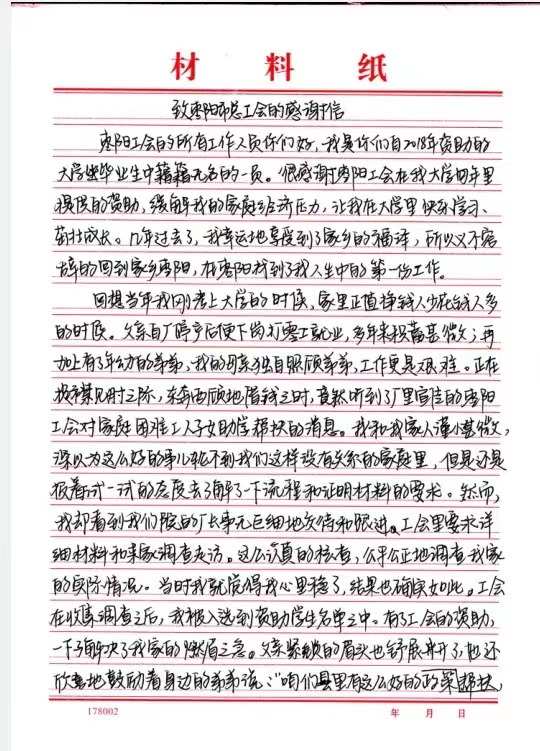 材料纸
致枣阳市总工会的感谢信
枣阳工会的所有工作人员你们好，我是你们自2018年资助的
大学生毕业生中藉藉无名的一员。很感谢枣阳工会在我大学四年里
提供的资助，缓解我的家庭经济压力，让我在大学里快乐学习、
茁壮成长。几年过去了，我幸运地享受到了家乡的福泽，所以义不容
辞的回到家乡枣阳，在枣阳找到了我人生中的第一份工作。
回想当年我刚考上大学的时候，家里正值挣钱人少花钱人多
的时候。父亲自厂停产后便下岗打零工就业，多年来积蓄甚微；再
加上有3年幼的弟弟，我的母亲独自照顾弟弟，工作更是艰难。正在
捉襟见肘之际，东奔西顾地借钱之时，竟然听到了厂里宣传的枣阳
工会对家庭困难工人子女助学帮扶的消息。我和我家人谨小甚微，
深以为这么好的事儿轮不到我们这样没有关系的家庭里，但是还是
报着试一试的态度去了解了一下流程和证明材料的要求。然而，
我却看到我们院的厂长事无巨细地交待和跟进。工会里要求详
细材料和来家调查走访。这么认真的核查，公平公正地调查我家
的实际情况。当时我就觉得我心里稳了，结果也确实如此。工会
在收集调查之后，我被入选到资助学生名单之中。有了工会的资助，
一下子解决了我家的燃眉之急。父亲紧锁的眉头也舒展开了，他还
欣喜地鼓励着身边的弟弟说：“咱们县里有这么好的政策帮扶，
178002 年 月 日